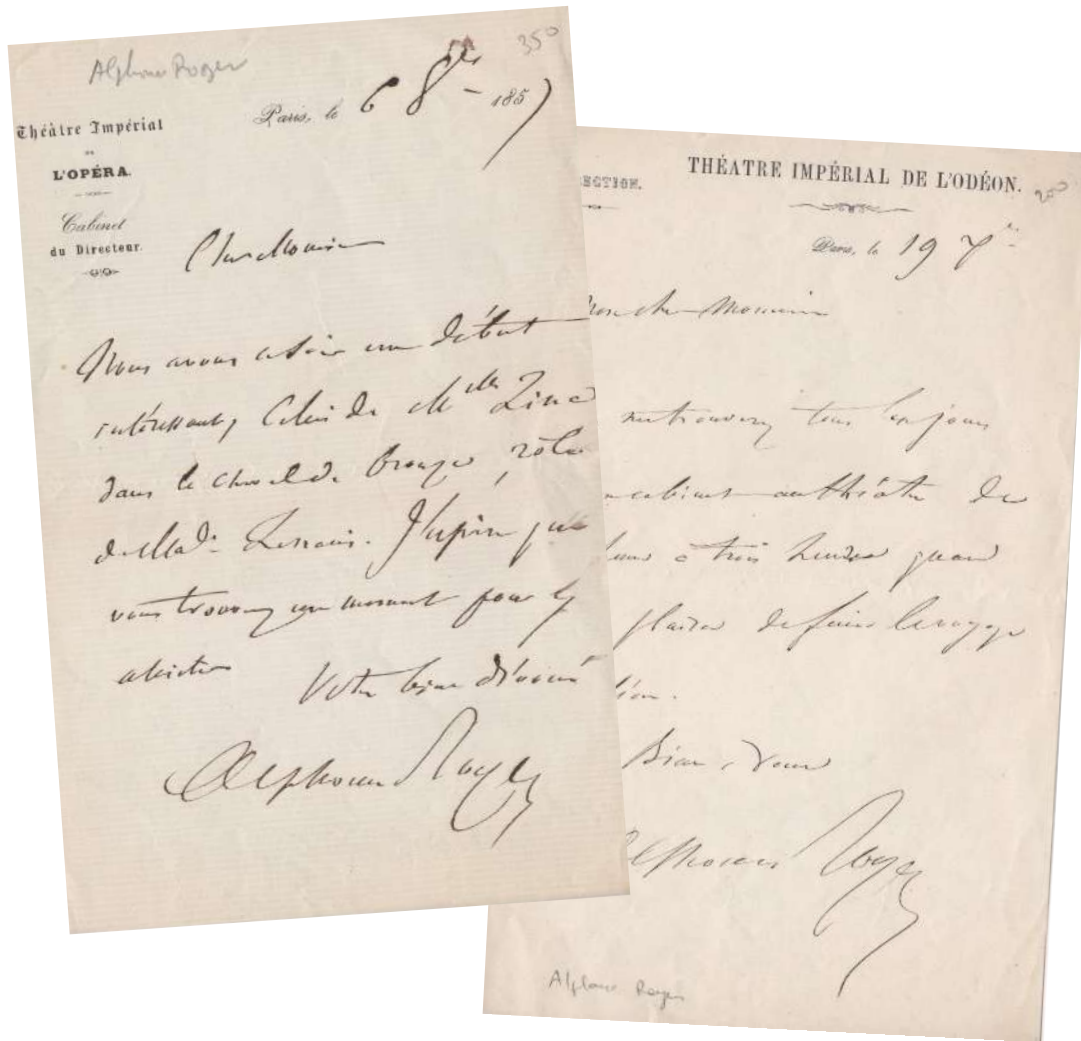 Alphonse Royer
350
Théâtre Impérial
DE
L'OPÉRA.
Cabinet
du Directeur.
Paris, le 6 8bre 1857
Cher Monsieur
Nous avons ce soir un début
intéressant, celui de Mlle Zina
dans le cheval de bronze, rôle
de Made
J'espère que
vous trouverez un moment pour y
assister
Votre bien dévoué
Alphonse Royer
ECTION.
THÉATRE IMPÉRIAL DE L'ODÉON.
200
Paris, le 19 7bre
Mon cher Monsieur
me trouverez tous les jours
cabinet au théâtre de
à trois heures quand
plaira de faire le voyage
Bien à vous
Alphonse Royer
Alphonse Royer